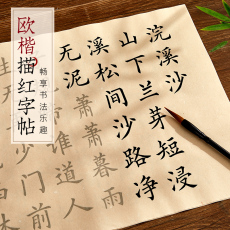 欧楷描红字帖
畅享书法乐趣
浣溪沙
山下兰芽短浸
溪松间沙路净
无泥萧萧暮雨
啼谁道人
少门前